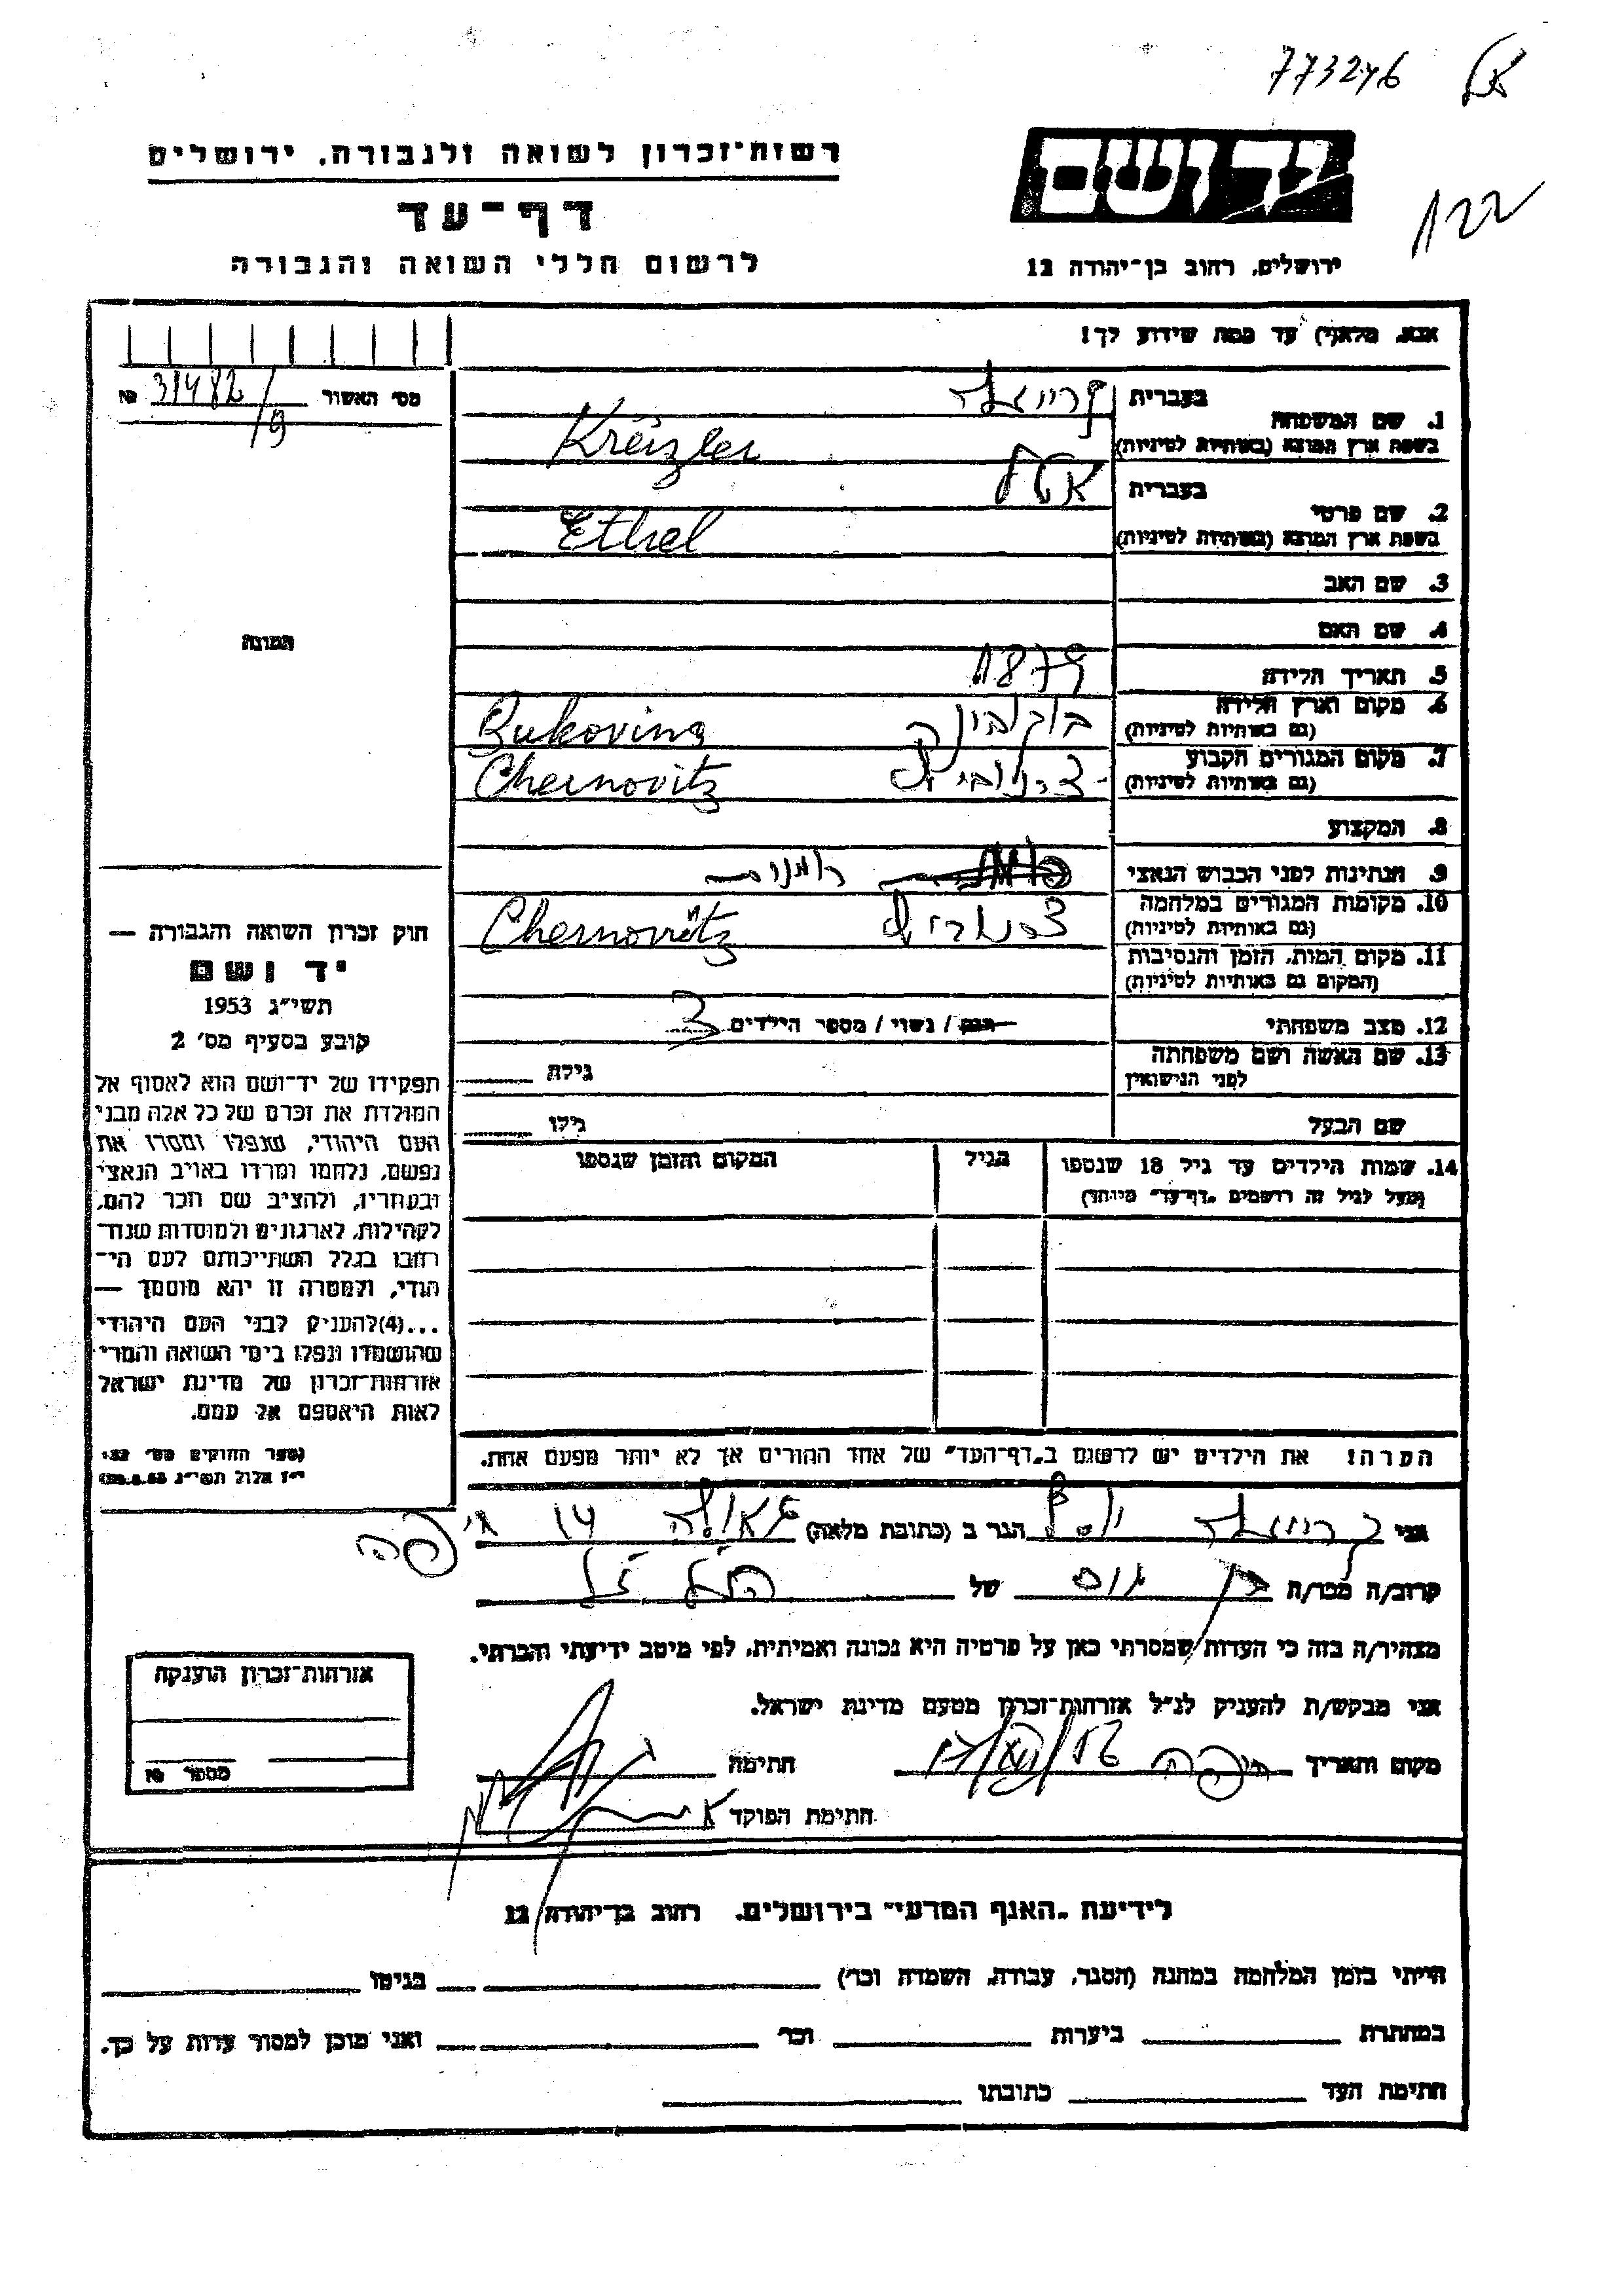 773276
122
רשות־זכרון לשואה ולגבורה, ירושלים
יד ושם
דף־עד
לרשום חללי השואה והגבורה
ירושלים, רחוב בן־יהודה 12
אנא, מלא(י) עד כמה שידוע לך!
מס' האשור 31482/9 №
בעברית
1. שם המשפחה
בשפת ארץ המוצא (באותיות לטיניות) Kreizler
בעברית אטל
2. שם פרטי
בשפת ארץ המוצא (באותיות לטיניות) Ethel
3. שם האב
4. שם האם
התמונה
5. תאריך הלידה 1879
6. מקום וארץ הלידה בוקובינה Bukovina
(גם באותיות לטיניות)
7. מקום המגורים הקבוע צרנוביץ Chernovitz
(גם באותיות לטיניות)
8. המקצוע
9. הנתינות לפני הכבוש הנאצי
10. מקומות המגורים במלחמה Chernovitz
(גם באותיות לטיניות)
11. מקום המות, הזמן והנסיבות
(המקום גם באותיות לטיניות)
12. מצב משפחתי רווק / נשוי / מספר הילדים 3
13. שם האשה ושם משפחתה
לפני הנישואין גילה
שם הבעל גילו
14. שמות הילדים עד גיל 18 שנספו הגיל המקום והזמן שנספו
(מעל לגיל זה רושמים "דף־עד" מיוחד)
הערה! את הילדים יש לרשום ב"דף־העד" של אחד ההורים אך לא יותר מפעם אחת.
חוק זכרון השואה והגבורה —
יד ושם
תשי"ג 1953
קובע בסעיף מס' 2
תפקידו של יד־ושם הוא לאסוף אל
המולדת את זכרם של כל אלה מבני
העם היהודי, שנפלו ומסרו את
נפשם, נלחמו ומרדו באויב הנאצי
ובעוזריו, ולהציב שם וזכר להם,
לקהילות, לארגונים ולמוסדות שנח־
רבו בגלל השתייכותם לעם הי־
הודי, ולמטרה זו יהא מוסמך —
...(4)להעניק לבני העם היהודי
שהושמדו ונפלו בימי השואה והמרי
אזרחות־זכרון של מדינת ישראל
לאות היאספם אל עמם.
(ספר החוקים מס' 132,
י"ז אלול תשי"ג 28.8.53)
אני קרייזלר יוסף הגר ב (כתובת מלאה) גאולה 14 חיפה
קרוב/ה מכר/ה בן של הנ"ל
מצהיר/ה בזה כי העדות שמסרתי כאן על פרטיה היא נכונה ואמיתית, לפי מיטב ידיעתי והכרתי.
אני מבקש/ת להעניק לנ"ל אזרחות־זכרון מטעם מדינת ישראל.
מקום ותאריך חיפה חתימה
חתימת הפוקד
אזרחות־זכרון הוענקה
מספר №
לידיעת "האגף המדעי" בירושלים, רחוב בן־יהודה 12
הייתי בזמן המלחמה במחנה (הסגר, עבודה, השמדה וכר') בגיטו
במחתרת ביערות וכר' ואני מוכן למסור עדות על כך.
חתימת העד כתובתו